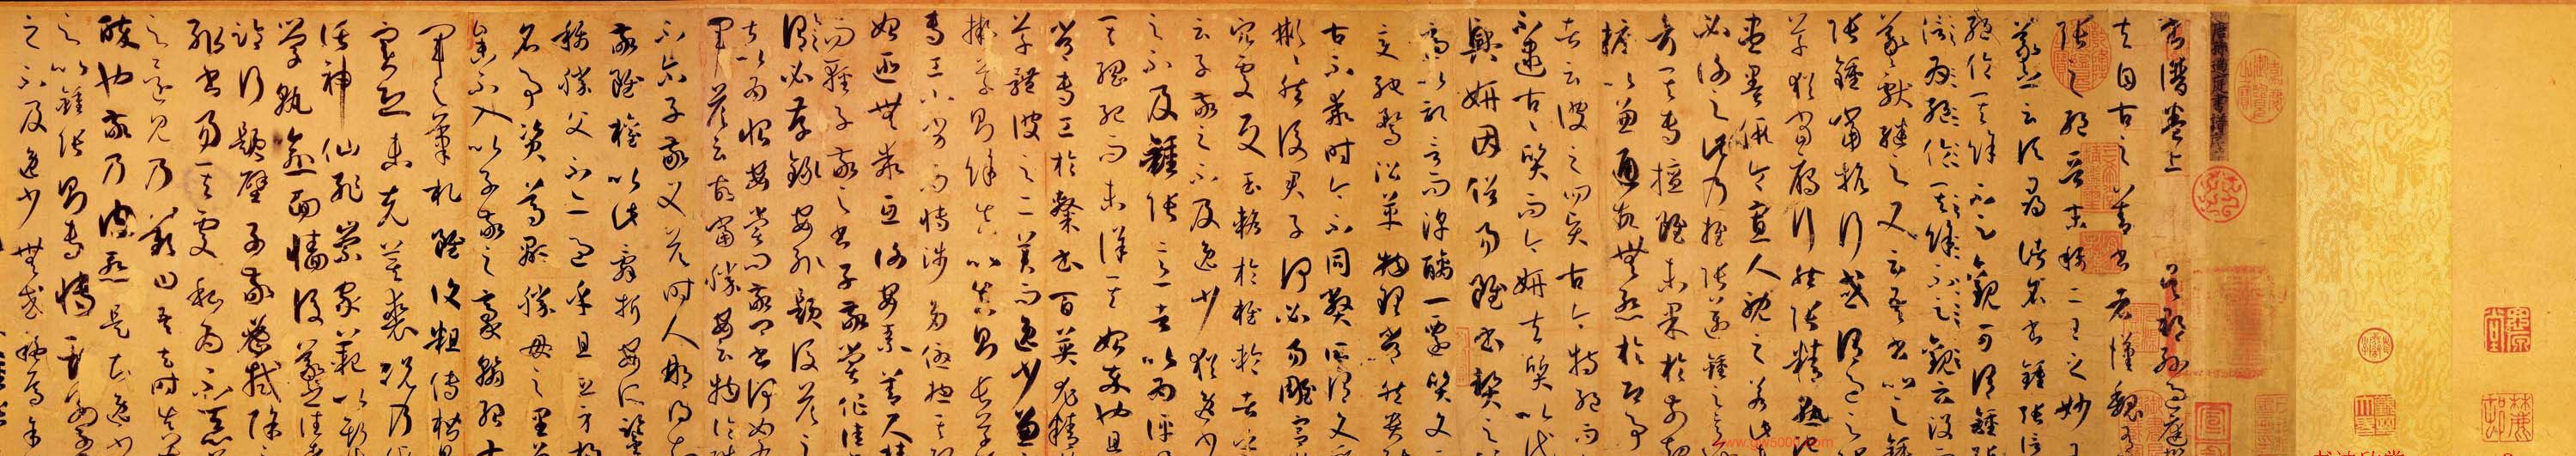 書譜卷上 吳郡孫過庭撰
夫自古之善書者漢魏有
張之絕晉末稱二王之妙王
羲之云頃尋諸名書鍾張信
絕倫其餘不足觀可謂鍾張
云沒而
羲獻繼之又云吾書比之鍾
張鍾當抗行或謂過之張
草猶當鴈行然張精熟池
盡墨假令寡人耽之若此
必謝之此乃推張邁鍾之意
考其專擅雖未果於前規
摭以兼通故無慚於即事
者云彼之四賢古今特絕而
不逮古古質而今妍夫質以代
興妍因俗易雖書契之
適以記言而淳醨一遷質文
變馳騖沿革物理常然貴能
古不乖時今不同弊所謂文質
彬彬然後君子何必易雕宮
穴處反玉輅於椎輪者乎
云子敬之不及逸少猶逸少
之不及鍾張意者以為評得
其綱紀而未詳其始卒也且
常專工於隸書百英尤精
草體彼之二美而逸少兼之
擬草則餘真比真則長草
專工小劣而博涉多優揔其終
始匪無乖互謝安素善尺牘
而輕子敬之書子敬嘗作佳書
謂必存錄安輒題後答之
甚以為恨安嘗問敬卿書何如右
軍答云故當勝安云物論殊
不爾子敬又答時人那得知
敬雖權以此辭折安所鑒
稱勝父不亦過乎且立身揚
名事資尊顯勝母之里曾
參不入以子敬之豪翰紹右
軍之筆札雖復粗傳楷則
實恐未克箕裘況乃假
託神仙恥崇家範以斯成
學孰愈面牆後羲之往都
臨行題壁子敬密拭除之
輒書易其處私為不惡羲
之還見乃歎曰吾去時真大
醉也敬乃內慚是知逸少
之比鍾張則專博斯別子敬
之不及逸少無或疑焉余